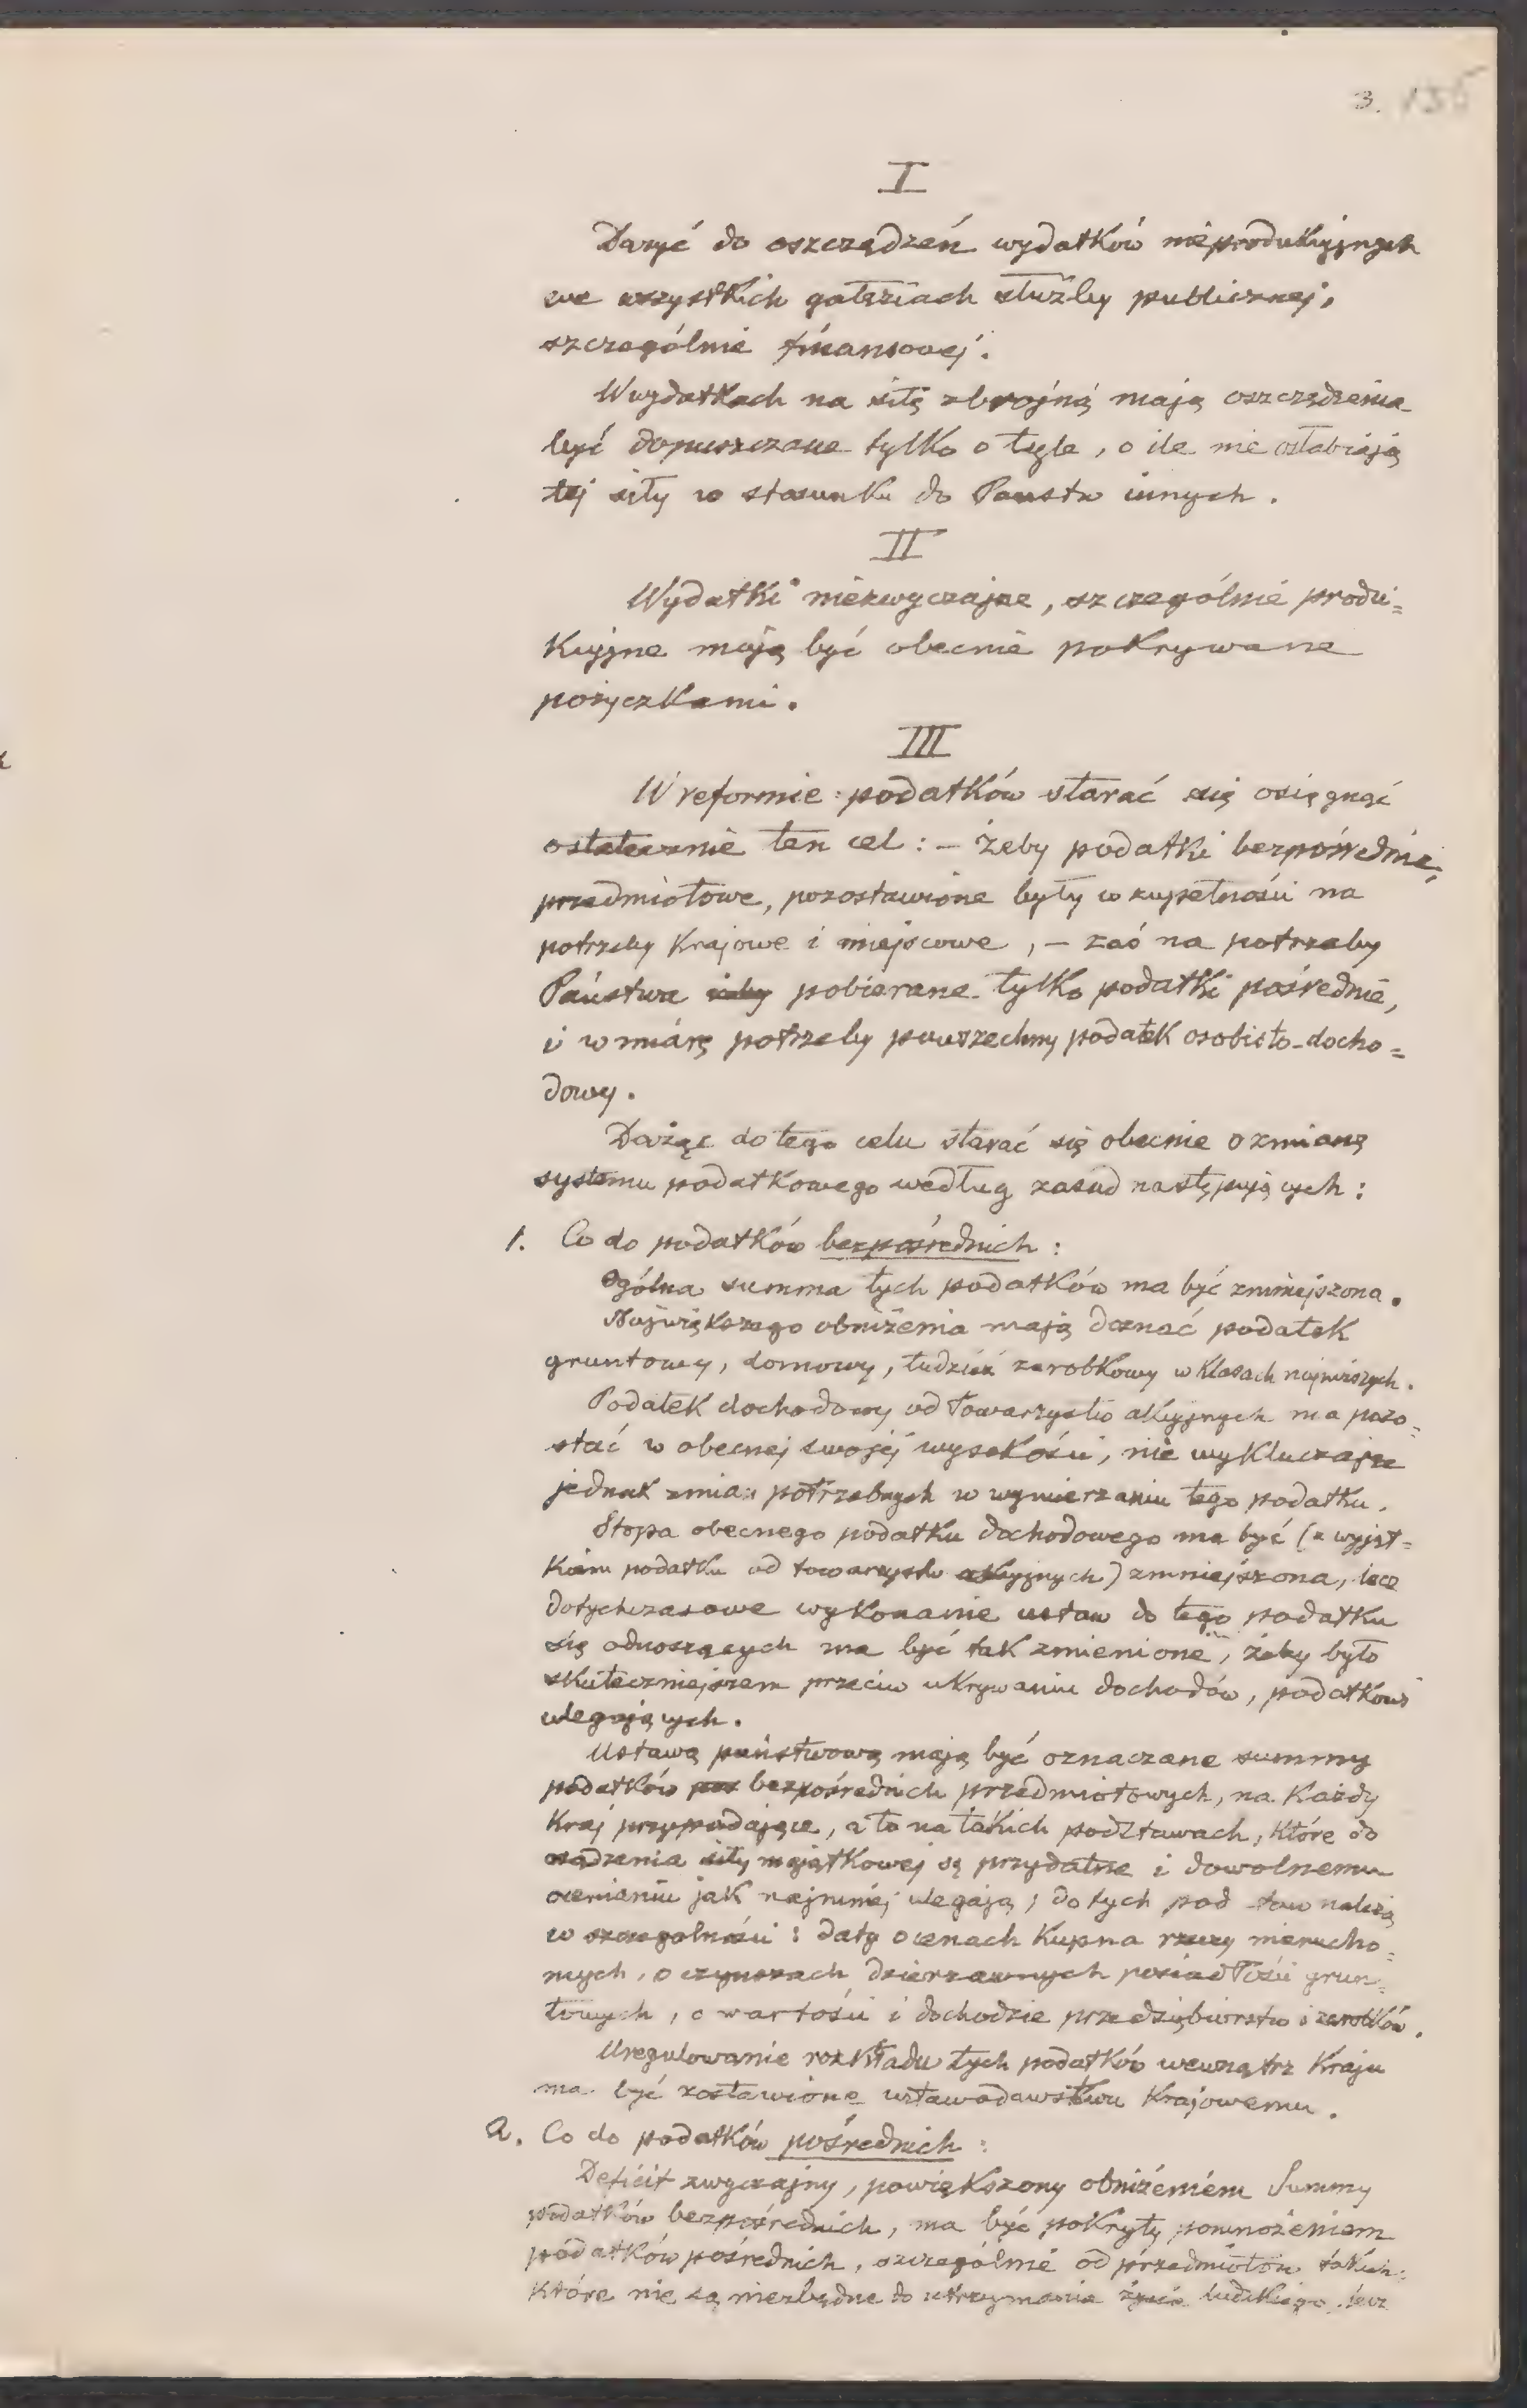 3. 135
I
Dązyć do oszczędzeń wydatków nieprodukcyjnych
we wszystkich gałęziach służby publicznej,
szczególnie finansowej.
W wydatkach na siłę zbrojną mają oszczędzenia
być dopuszczane tylko o tyle, o ile nie osłabiają
tej siły w stosunku do Państw innych.
II
Wydatki niezwyczajne, szczególnie produ=
kcyjne mają być obecnie pokrywane
pożyczkami.
III
W reformie podatków starać się osięgnąć
ostatecznie ten cel: – żeby podatki bezpośrednie,
przedmiotowe, pozostawione były w zupełności na
potrzeby krajowe i miejscowe, – zaś na potrzeby
Państwa pobierane tylko podatki pośrednie,
i w miarę potrzeby powszechny podatek osobisto-docho=
dowy.
Dążąc do tego celu starać się obecnie o zmianę
systemu podatkowego według zasad następujących:
1. Co do podatków bezpośrednich:
Ogólna summa tych podatków ma być zmniejszona.
Największego obniżenia mają doznać podatek
gruntowy, domowy, tudzież zarobkowy w klasach najniższych.
Podatek dochodowy od Towarzystw akcyjnych ma pozo=
stać w obecnej swojej wysokości, nie wykluczając
jednak zmian potrzebnych w wymierzaniu tego podatku.
Stopa obecnego podatku dochodowego ma być (z wyjąt=
kiem podatku od towarzystw akcyjnych) zmniejszona, lecz
dotychczasowe wykonanie ustaw do tego podatku
się odnoszących ma być tak zmienione, żeby było
skuteczniejszem przeciw ukrywaniu dochodów, podatkowi
ulegających.
Ustawą państwową mają być oznaczane summy
podatków bezpośrednich przedmiotowych, na każdy
kraj przypadające, a to na takich podstawach, które do
osądzenia siły majątkowej są przydatne i dowolnemu
ocenianiu jak najmniej ulegają; do tych podstaw należą
w szczególności: daty o cenach kupna rzeczy nierucho=
mych, o czynszach dzierzawnych posiadłości grun=
towych, o wartości i dochodzie przedsiębiorstw i zarobków.
Uregulowanie rozkładu tych podatków wewnątrz kraju
ma być zostawione ustawodawstwu krajowemu.
2. Co do podatków pośrednich:
Deficit zwyczajny, powiększony obniżeniem Summy
podatków bezpośrednich, ma być pokryty pomnożeniem
podatków pośrednich, szczególnie od przedmiotów takich
które nie są niezbędne do utrzymania życia ludzkiego, lecz